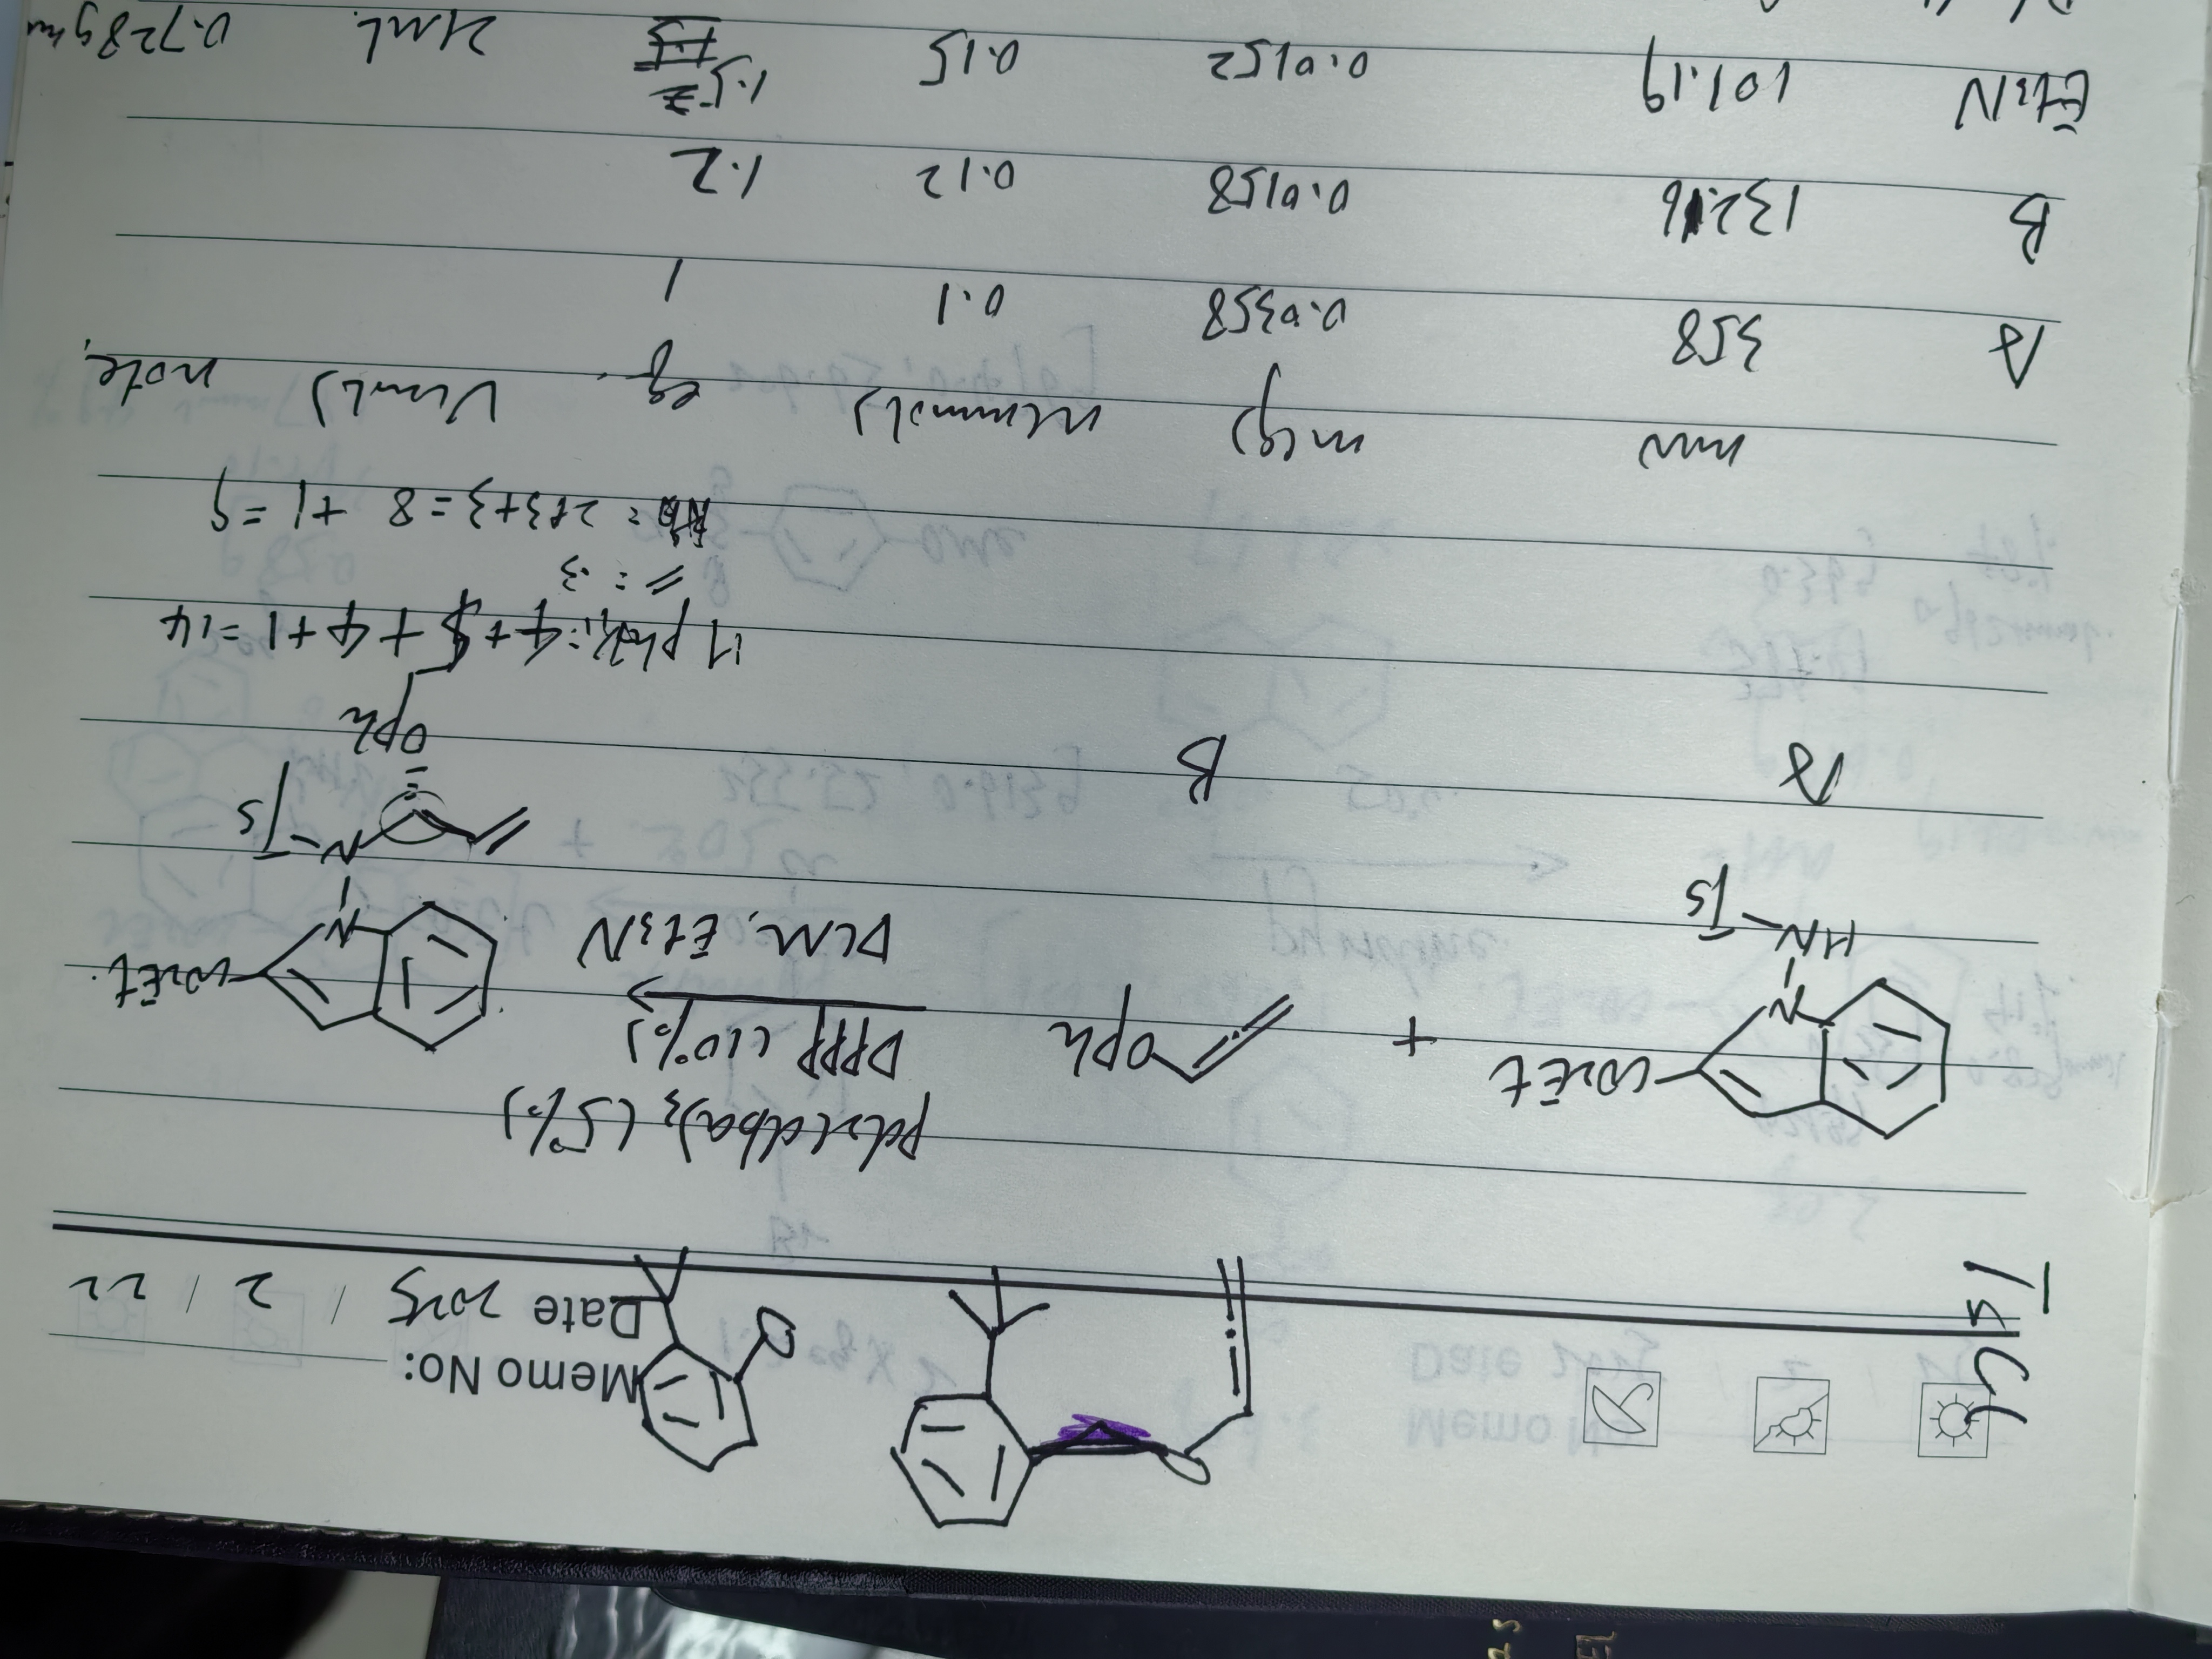 Memo No:
Date 2025 / 2 / 22
Pd2(dba)3 (5%)
DPPP (10%)
DCM, Et3N
CO2Et
N
HN-Ts
+
OPh
CO2Et
N
N-Ts
OPh
A
B
=: 3
= 2+3+3=8 +1=9
mw m(g) n(mmol) eq. V(mL) note.
A 358 0.0358 0.1 1
B 132.16 0.0158 0.12 1.2
Et3N 101.19 0.0152 0.15 1.5 21mL 0.728g/mL